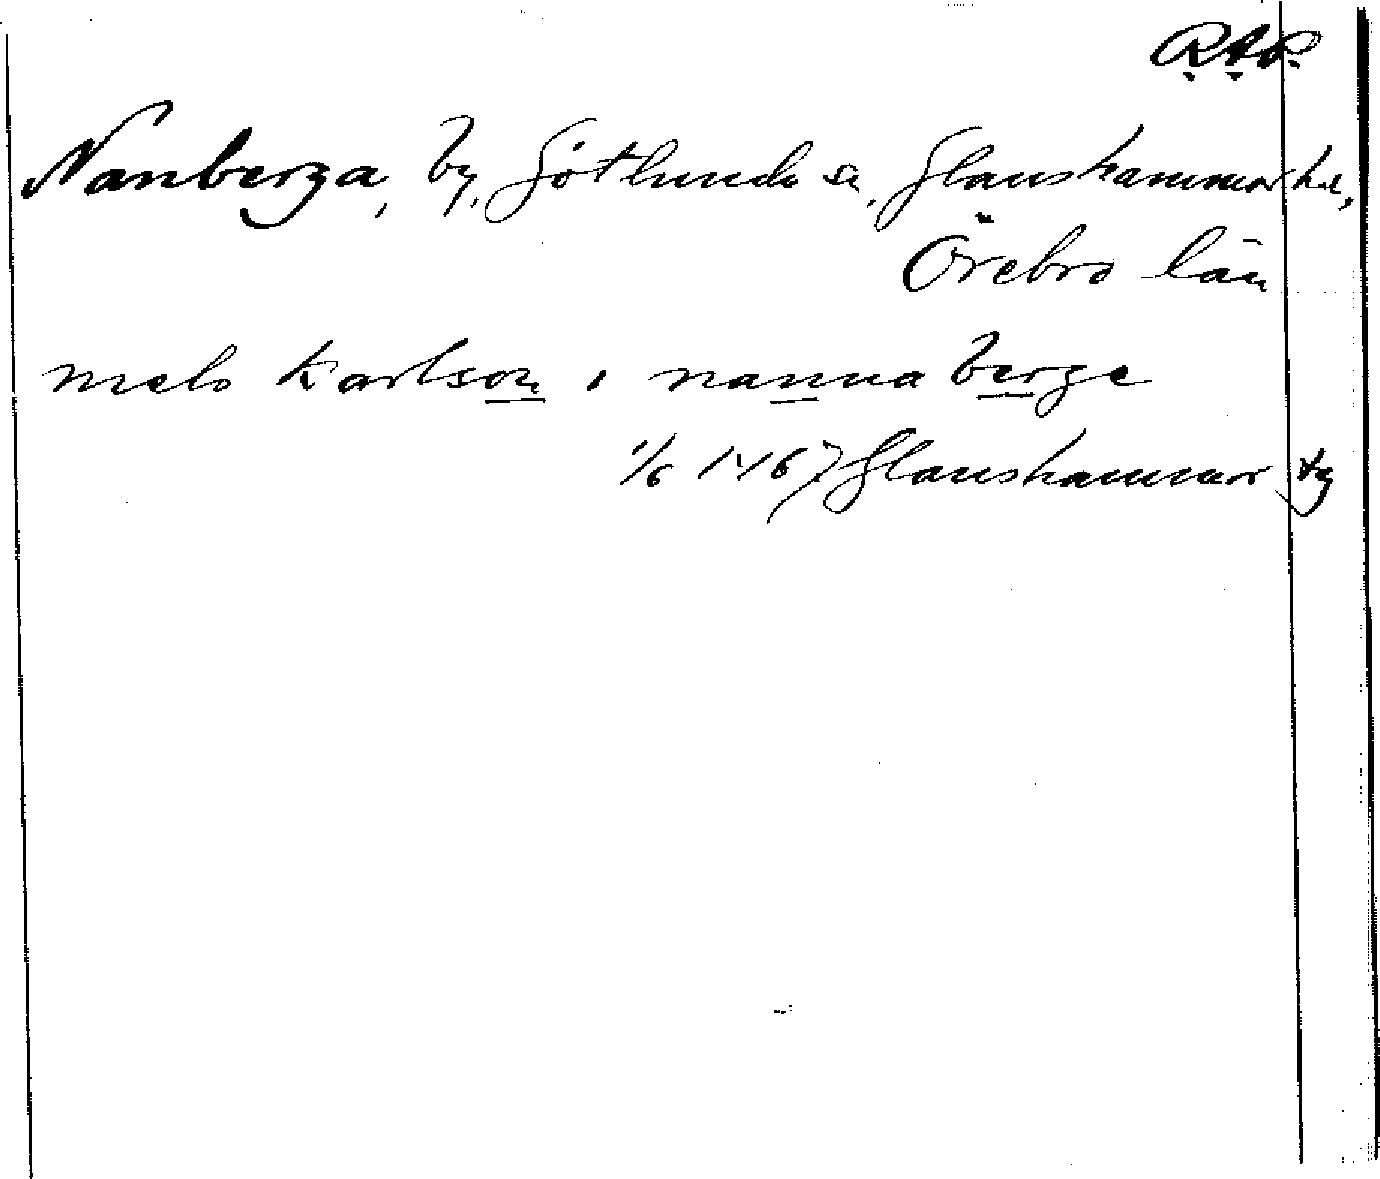 R.A.P.
Nanberga, by, Götlunda sn, Glanshammar hd,
Örebro län
niels karlson i nanna berge
1/6 1467 Glanshammar tg